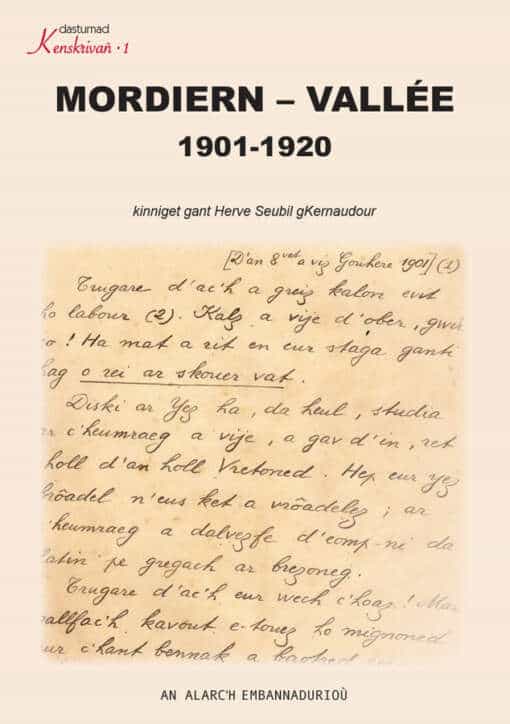 dastumad
Kenskrivañ · 1
MORDIERN – VALLÉE
1901-1920
kinniget gant Herve Seubil gKernaudour
[D'an 8vet a viz Gouhere 1901] (1)
Trugare d'ac'h a greiz kalon evit
ho labour (2). Kalz a vije d'ober, gwir
eo ! Ha mat a rit en eur staga ganti
hag o rei ar skouer vat.
Diski ar Yez ha, da heul, studia
ar c'heumraeg a vije, a gav d'in, ret
holl d'an holl Vretoned. Hep eur yez
brôadel n'eus ket a vrôadelez ; ar
c'heumraeg a dalvezfe d'eomp-ni da
latin pe gregach ar brezoneg.
Trugare d'ac'h eur wech c'hoaz ! Mar
gallfac'h kavout e-touez ho mignoned
eur c'hant bennak a baotred
AN ALARC'H EMBANNADURIOÙ